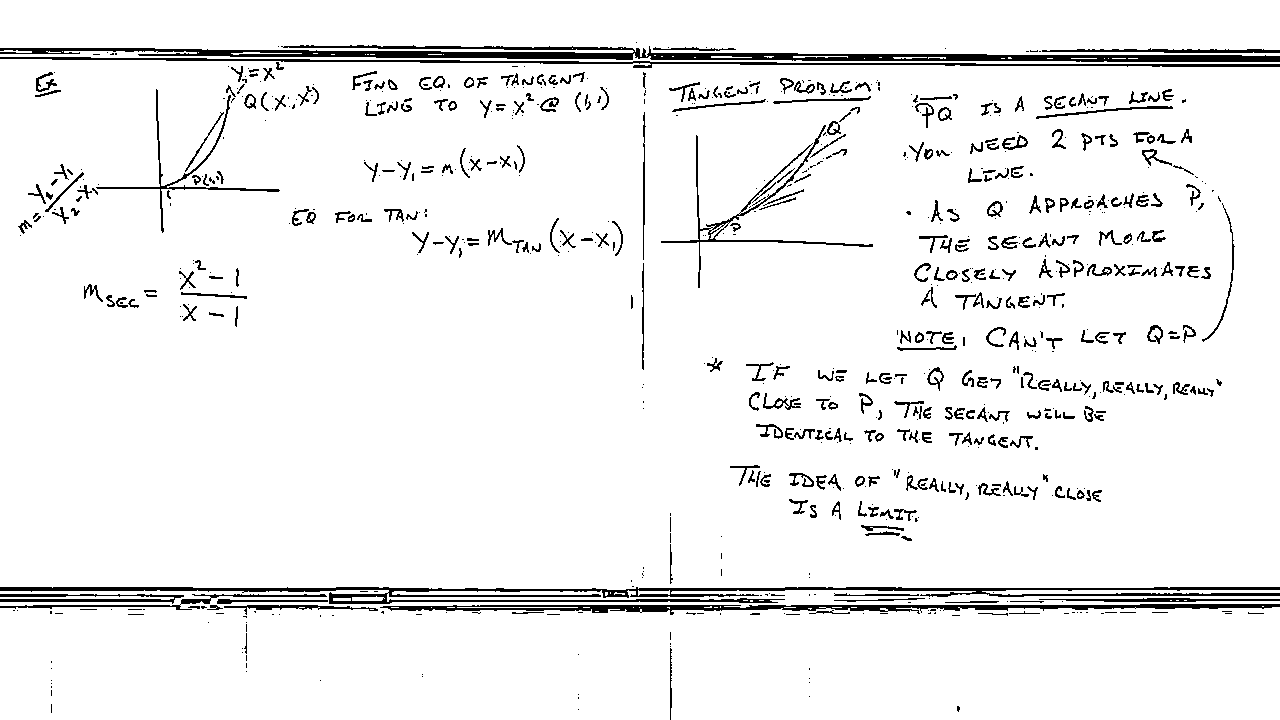 Ex
Y=X²
Q(X,X²)
P(1,1)
1
m=Y₂-Y₁/X₂-X₁
FIND EQ. OF TANGENT
LINE TO Y=X² @ (1,1)
Y-Y₁=m(X-X₁)
EQ FOR TAN:
Y-Y₁=M_TAN(X-X₁)
M_SEC = X²-1/X-1
TANGENT PROBLEM:
Q
P
PQ IS A SECANT LINE.
·YOU NEED 2 PTS FOR A
LINE.
· AS Q APPROACHES P,
THE SECANT MORE
CLOSELY APPROXIMATES
A TANGENT.
NOTE: CAN'T LET Q=P
* IF WE LET Q GET "REALLY, REALLY, REALLY"
CLOSE TO P, THE SECANT WILL BE
IDENTICAL TO THE TANGENT.
THE IDEA OF "REALLY, REALLY" CLOSE
IS A LIMIT.